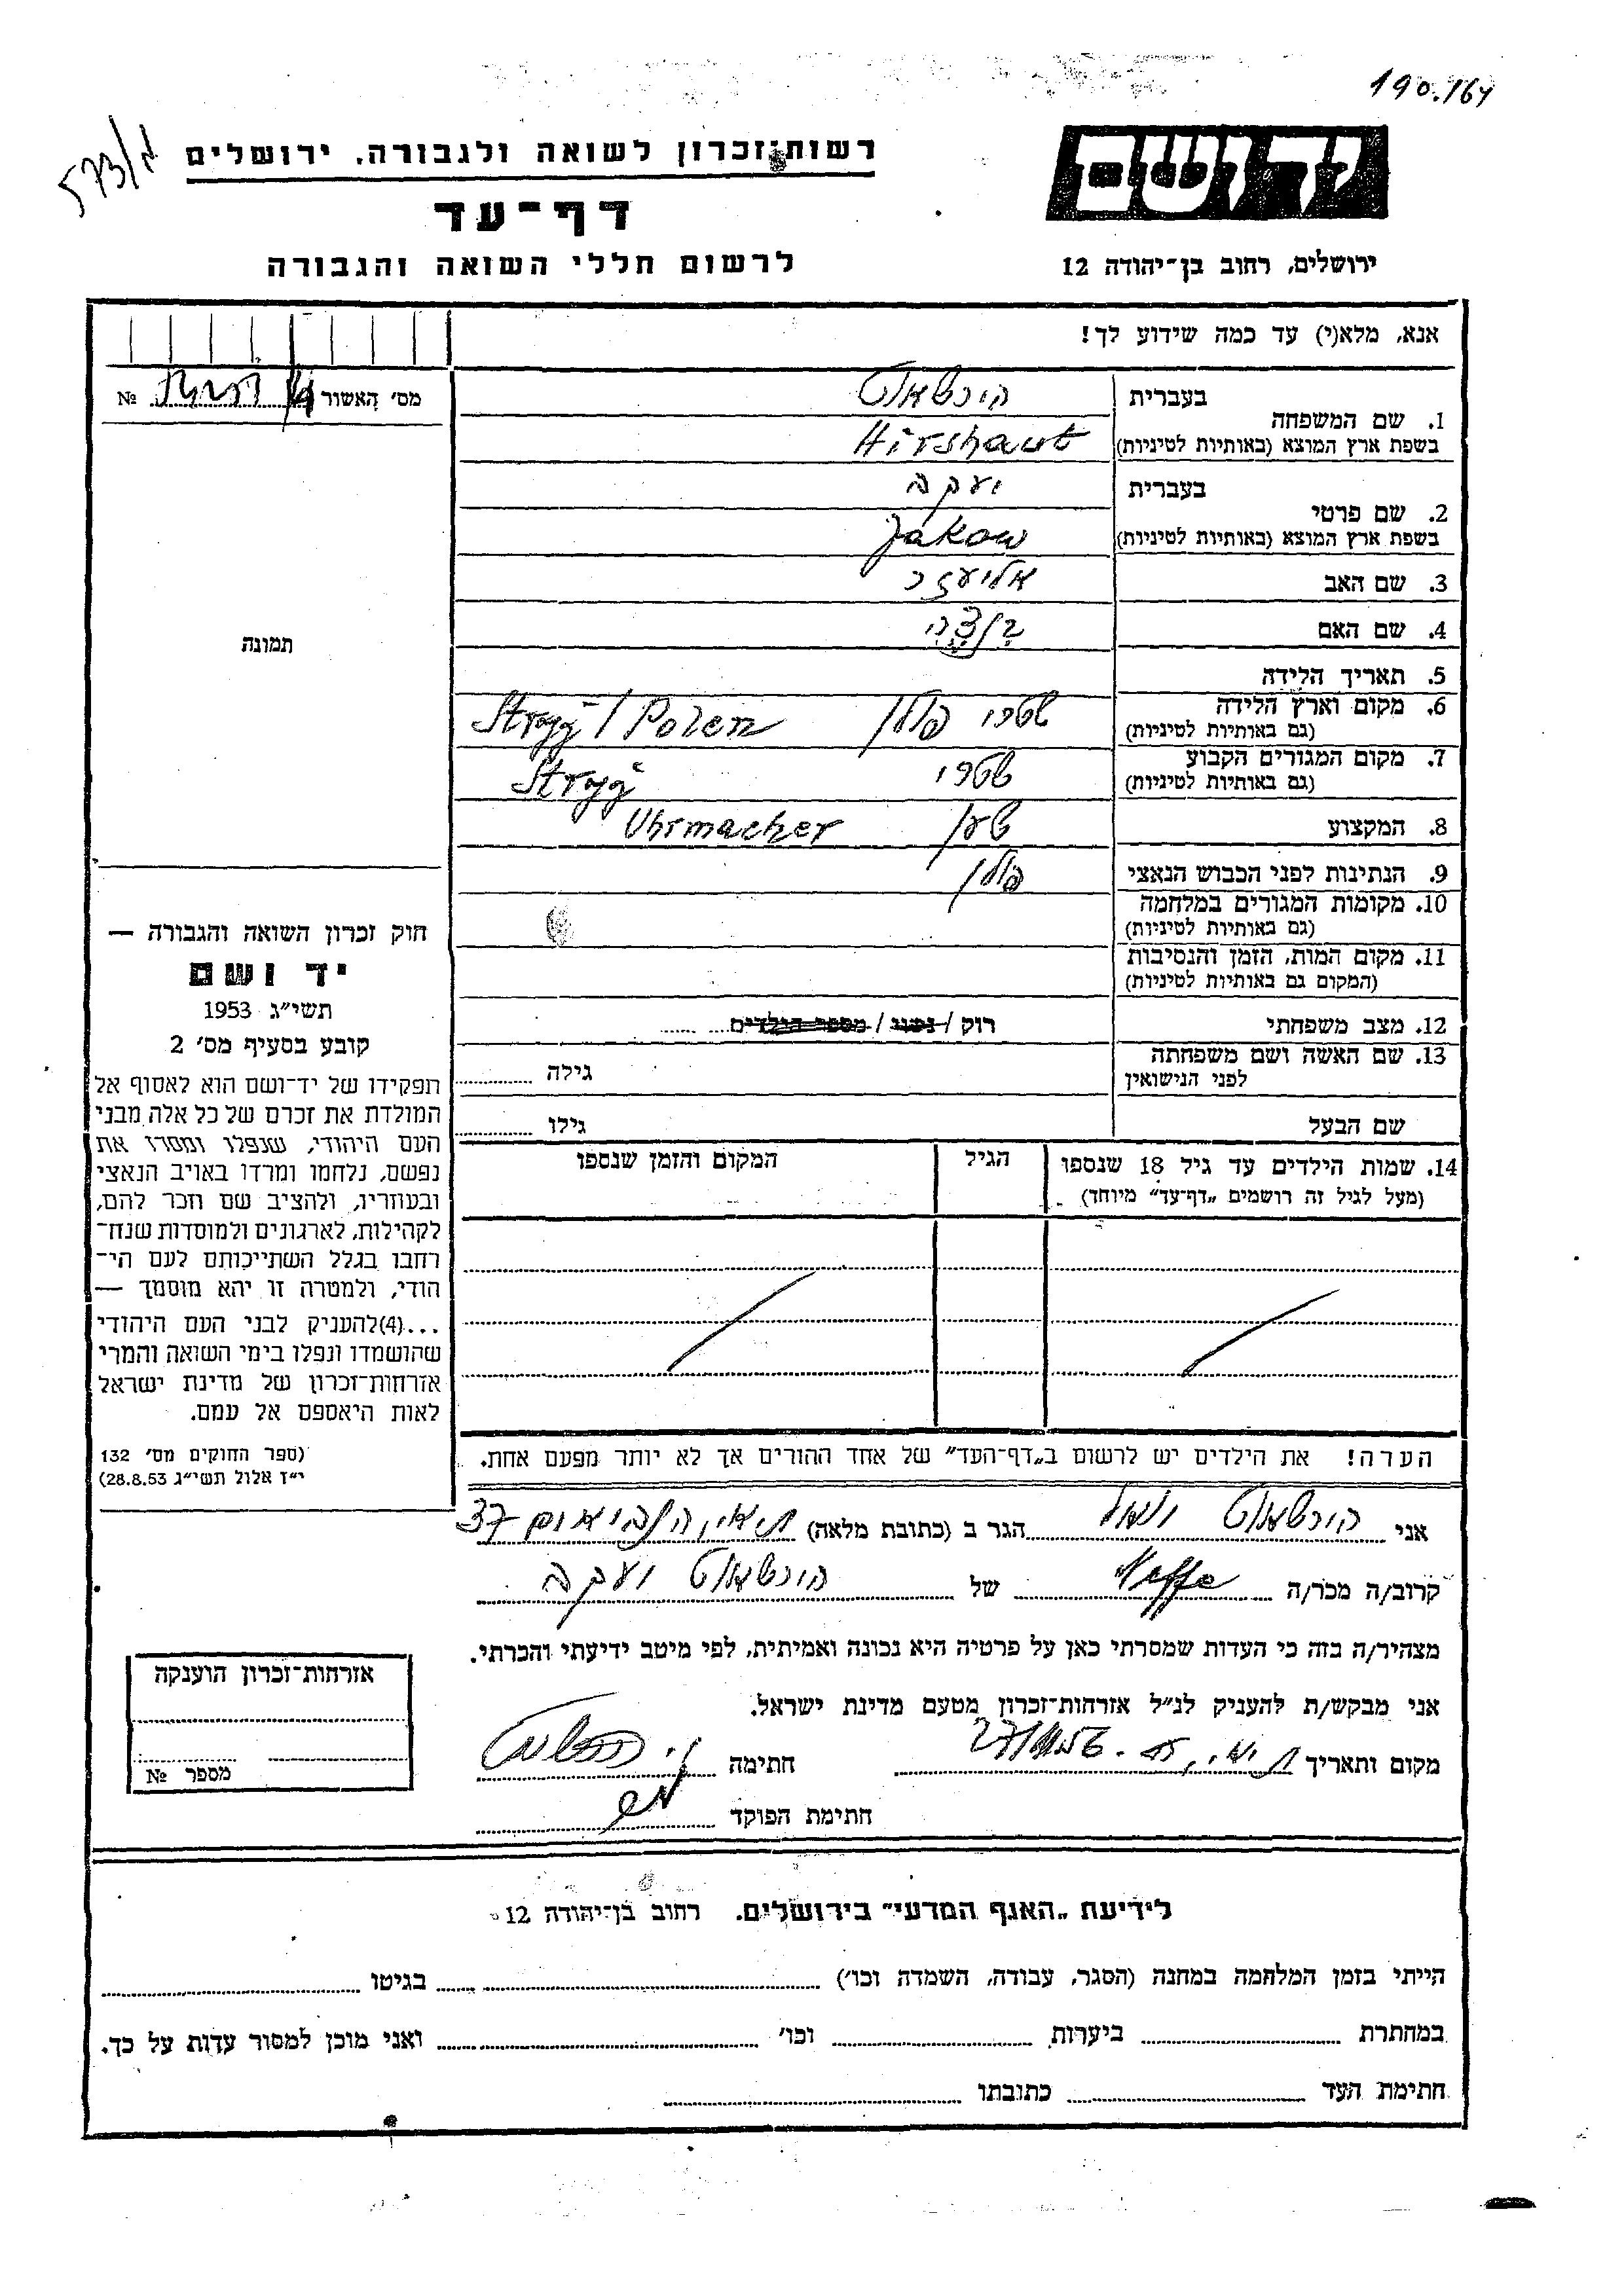 190.164
573/א
רשות־זכרון לשואה ולגבורה. ירושלים
ידושם
דף־עד
לרשום חללי השואה והגבורה
ירושלים, רחוב בן־יהודה 12
אנא, מלא(י) עד כמה שידוע לך!
מס׳ האשור № 
1. שם המשפחה בעברית הירשאוט
בשפת ארץ המוצא (באותיות לטיניות) Hirshaut
2. שם פרטי בעברית יעקב
בשפת ארץ המוצא (באותיות לטיניות) Jakow
3. שם האב אליעזר
4. שם האם
5. תאריך הלידה
6. מקום וארץ הלידה סטרי פולין Stryj / Polen
(גם באותיות לטיניות)
7. מקום המגורים הקבוע סטרי Stryj
(גם באותיות לטיניות)
8. המקצוע שען Uhrmacher
9. הנתינות לפני הכבוש הנאצי פולין
10. מקומות המגורים במלחמה
(גם באותיות לטיניות)
11. מקום המות, הזמן והנסיבות
(המקום גם באותיות לטיניות)
12. מצב משפחתי רוק / נשוי / מספר הילדים
13. שם האשה ושם משפחתה
לפני הנישואין גילה
שם הבעל גילו
14. שמות הילדים עד גיל 18 שנספו הגיל המקום והזמן שנספו
(מעל לגיל זה רושמים „דף־עד״ מיוחד)
תמונה
חוק זכרון השואה והגבורה —
יד ושם
תשי״ג 1953
קובע בסעיף מס׳ 2
תפקידו של יד־ושם הוא לאסוף אל
המולדת את זכרם של כל אלה מבני
העם היהודי, שנפלו ומסרו את
נפשם, נלחמו ומרדו באויב הנאצי
ובעוזריו, ולהציב שם וזכר להם,
לקהילות, לארגונים ולמוסדות שנח־
רבו בגלל השתייכותם לעם הי־
הודי, ולמטרה זו יהא מוסמך —
...(4)להעניק לבני העם היהודי
שהושמדו ונפלו בימי השואה והמרי
אזרחות־זכרון של מדינת ישראל
לאות היאספם אל עמם.
(ספר החוקים מס׳ 132
י״ז אלול תשי״ג 28.8.53)
הערה! את הילדים יש לרשום ב„דף־העד״ של אחד ההורים אך לא יותר מפעם אחת.
אני הירשאוט הגר ב (כתובת מלאה) 37
קרוב/ה מכר/ה Neffe של הירשאוט יעקב
מצהיר/ה בזה כי העדות שמסרתי כאן על פרטיה היא נכונה ואמיתית, לפי מיטב ידיעתי והכרתי.
אני מבקש/ת להעניק לנ״ל אזרחות־זכרון מטעם מדינת ישראל.
מקום ותאריך חתימה
חתימת הפוקד
אזרחות־זכרון הוענקה
מספר №
לידיעת „האגף המדעי״ בירושלים. רחוב בן־יהודה 12
הייתי בזמן המלחמה במחנה (הסגר, עבודה, השמדה וכו׳) בגיטו
במחתרת ביערות וכו׳ ואני מוכן למסור עדות על כך.
חתימת העד כתובתו